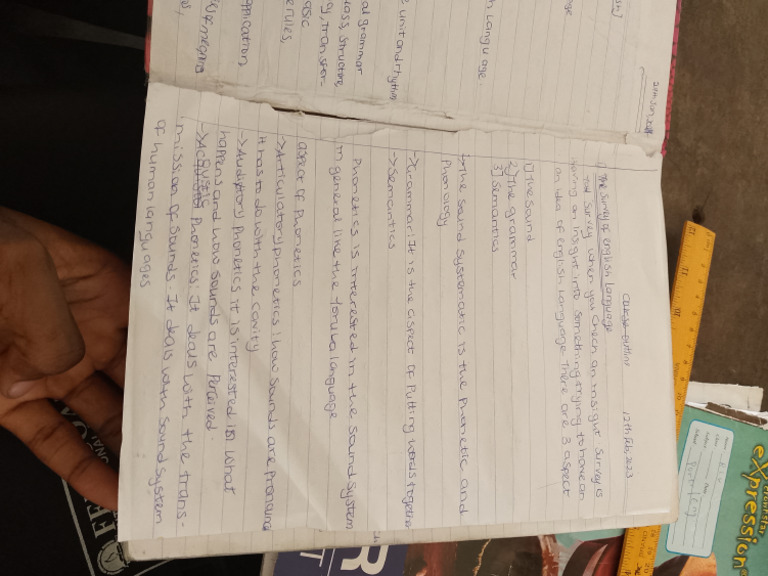 Course outline 12th Feb, 2023
1) The survey of english Language
The survey when you check an insight survey is
having an insight into something trying to have an
an idea of english Language. There are 3 aspect
1) The sound
2) The grammar
3) Semantics
→The sound systematic is the phonetic and
Phonology
→Grammar: It is the aspect of putting words together
→Semantics
Phonetics is interested in the sound system
in general like the Yoruba language
aspect of Phonetics
→Articulatory phonetics: how sounds are pronounc
It has to do with the cavity
→Auditory Phonetics it is interested in what
happens and how sounds are Perceived.
→Acoustic Phonetics: It deals with the trans-
mission of sounds. It deals with sound system
of human languages
h Language.
e unit and rhythm
al grammar
lass, structure
g, transfor-
asic
erules,
application
meaning
Frontstar
eXpression